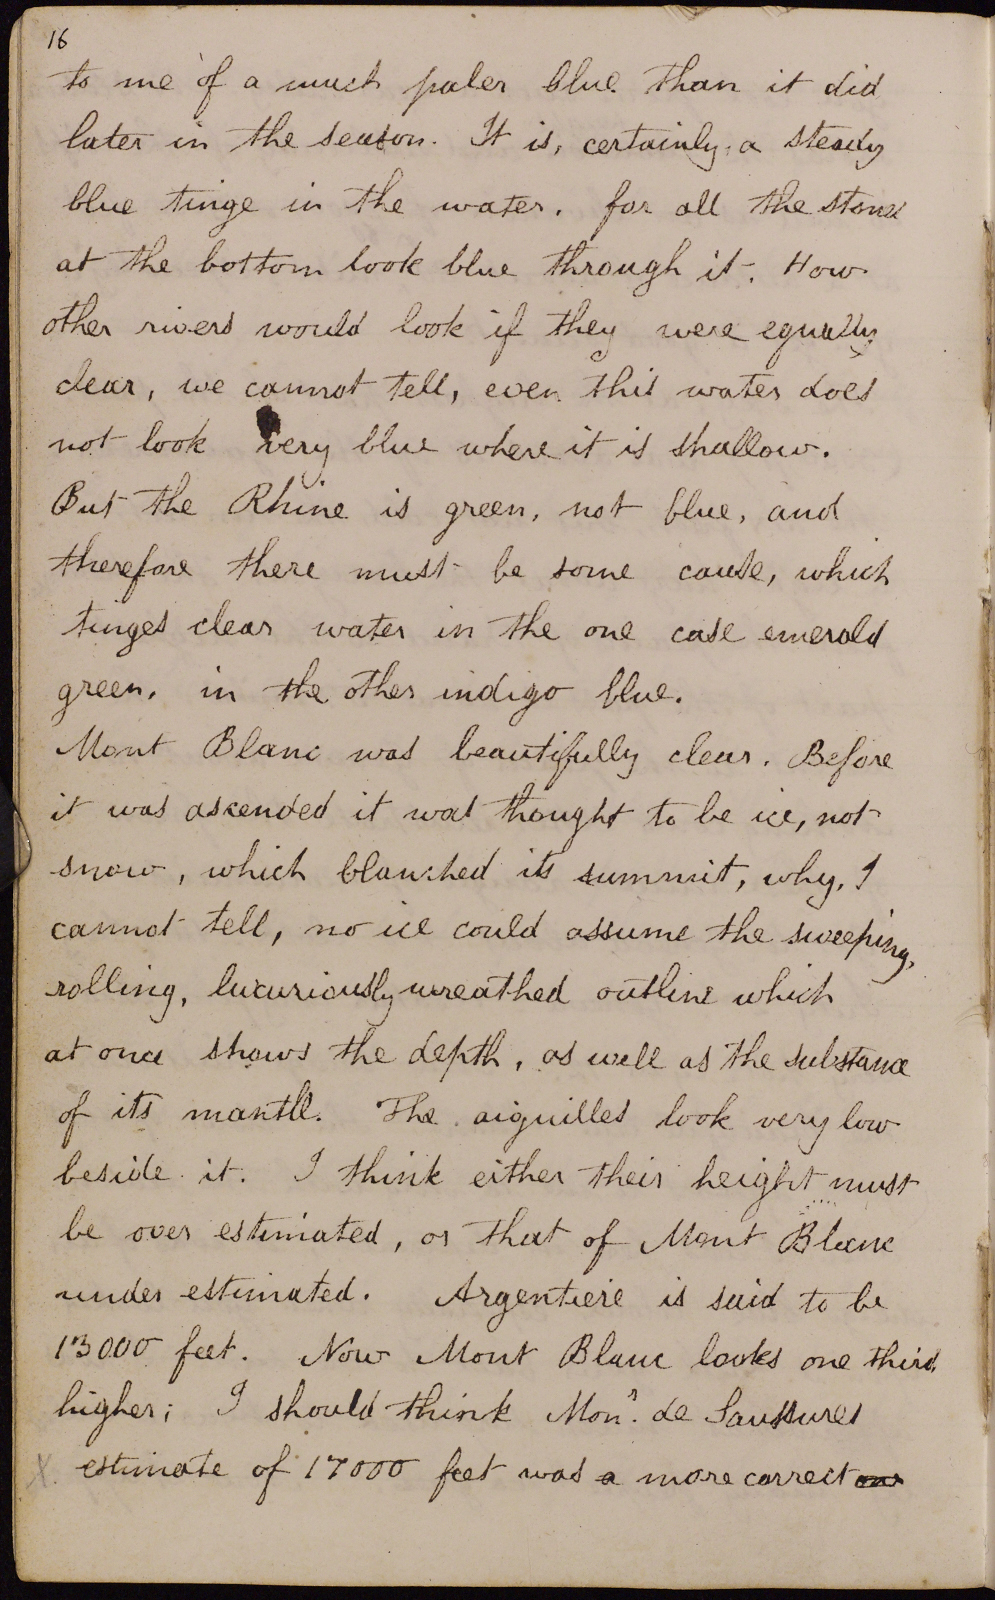 16
to me of a much paler blue than it did
later in the season. It is, certainly, a steady
blue tinge in the water, for all the stones
at the bottom look blue through it. How
other rivers would look if they were equally
clear, we cannot tell, even this water does
not look very blue where it is shallow.
But the Rhine is green, not blue, and
therefore there must be some cause, which
tinges clear water in the one case emerald
green, in the other indigo blue.
Mont Blanc was beautifully clear. Before
it was ascended it was thought to be ice, not
snow, which blanched its summit, why, I
cannot tell, no ice could assume the sweeping,
rolling, luxuriously wreathed outline which
at once shows the depth, as well as the substance
of its mantle. The aiguilles look very low
beside it. I think either their height must
be over estimated, or that of Mont Blanc
under estimated. Argentiere is said to be
13000 feet. Now Mont Blanc looks one third
higher; I should think Mon.r de Saussures
X. estimate of 17000 feet was a more correct one